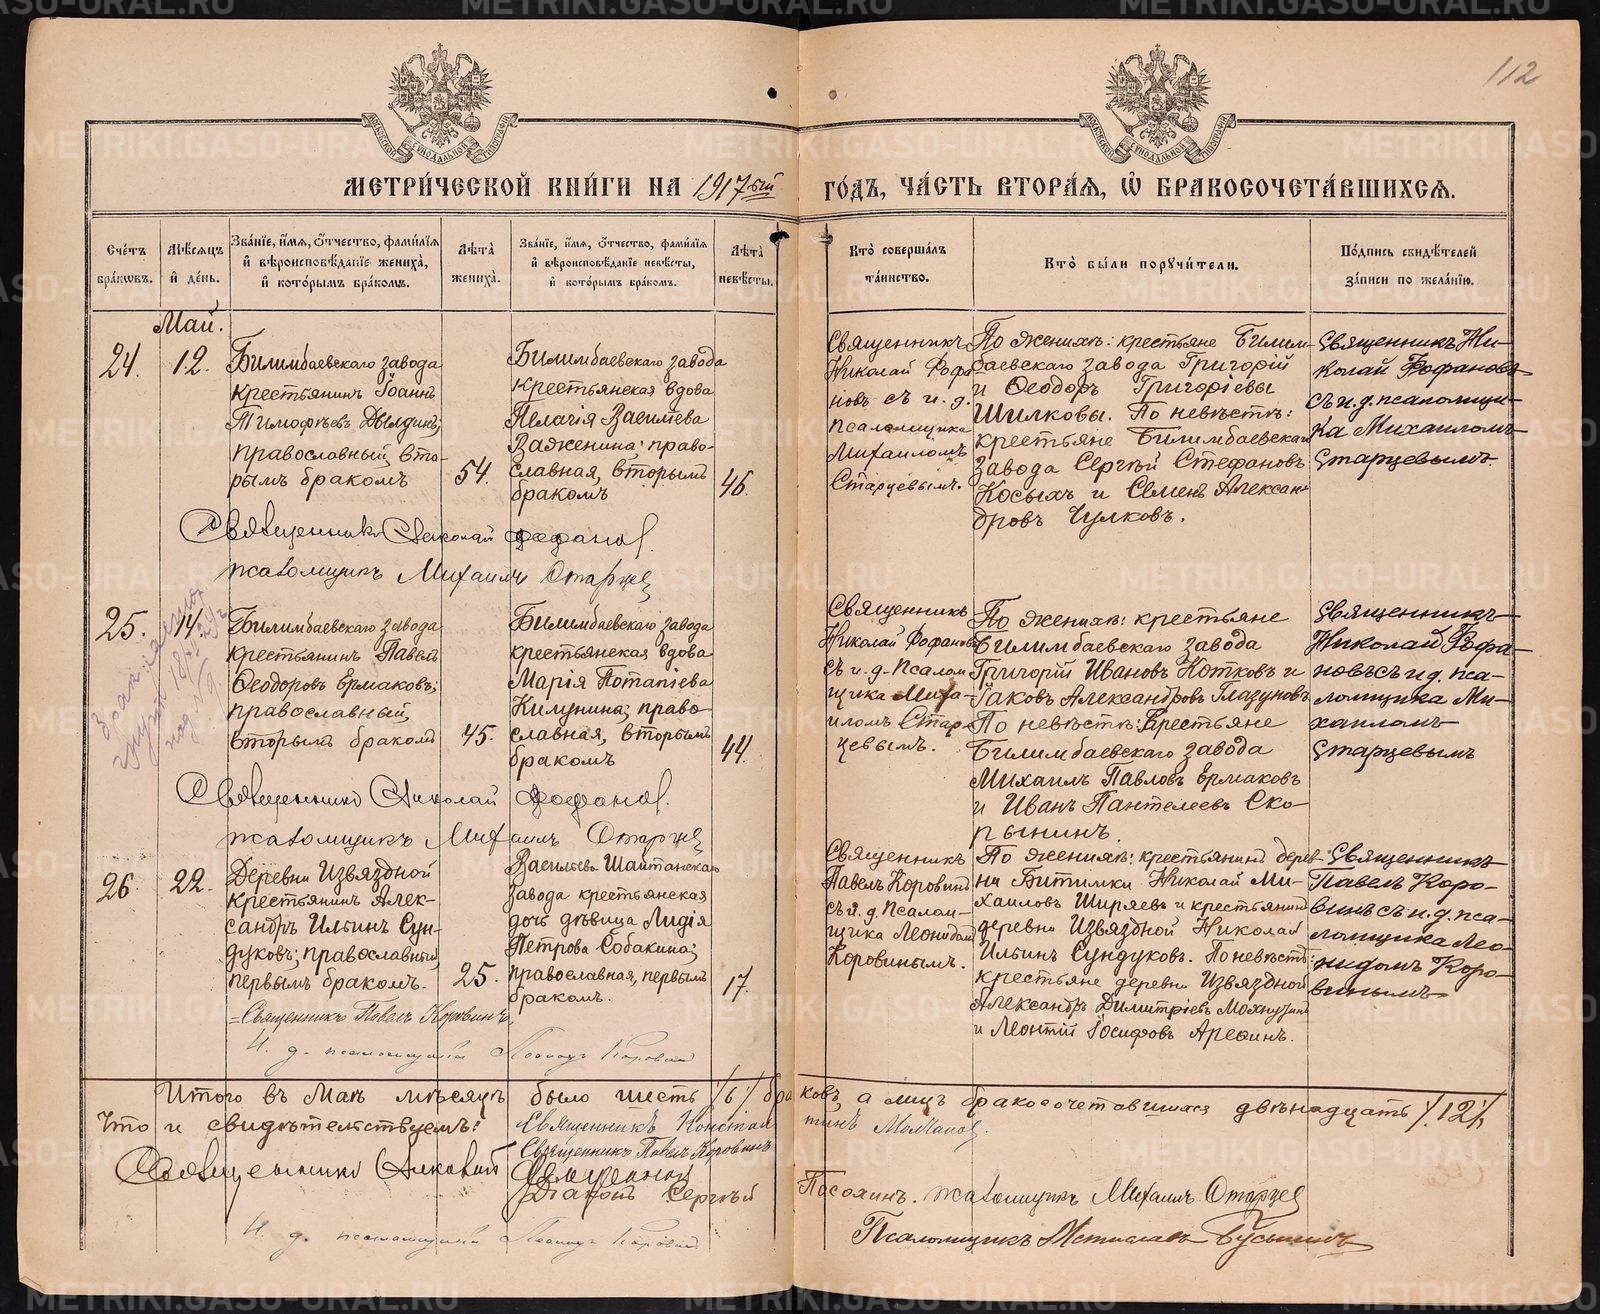 112
МОСКОВСКОЙ СѴНОДАЛЬНОЙ ТИПОГРАФІИ
МОСКОВСКОЙ СѴНОДАЛЬНОЙ ТИПОГРАФІИ
МЕТРИ́ЧЕСКОЙ КНИ́ГИ НА 1917-ый
ГО́ДЪ, ЧА́СТЬ ВТОРА́Я, Ѡ҆ БРАКОСОЧЕТА́ВШИХСЯ.
Сче́тъ бра́кѡвъ.
Мѣ́сяцъ и҆ де́нь.
Зва́нїе, и҆́мя, ѻ҆́тчество, фами́лїя и҆ вѣроисповѣ́данїе жениха̀, и҆ кото́рымъ бра́комъ.
Лѣ́та жениха̀.
Зва́нїе, и҆́мя, ѻ҆́тчество, фами́лїя и҆ вѣроисповѣ́данїе невѣ́сты, и҆ кото́рымъ бра́комъ.
Лѣ́та невѣ́сты.
Кто̀ соверша́лъ та́инство.
Кто̀ бы́ли порꙋчи́тели.
По́дпись свидѣ́телей за́писи по жела́нїю.
Май.
24.
12.
Билимбаевскаго завода
крестьянинъ Іоаннъ
Тимофѣевъ Дылдинъ;
православный, вто-
рымъ бракомъ
54.
Билимбаевскаго завода
крестьянская вдова
Пелагія Васильева
Заженина; право-
славная, вторымъ
бракомъ
46.
Священникъ
Николай Фофа
новъ съ и. д.
псаломщика
Михаиломъ
Старцевымъ.
По женихѣ: крестьяне Билим-
баевскаго завода Григорій
и Ѳеодоръ Григоріевы
Шилковы. По невѣстѣ:
крестьяне Билимбаевскаго
завода Сергѣй Стефановъ
Косыхъ и Семенъ Алексан-
дровъ Чулковъ.
Священникъ Ни-
колай Фофановъ
съ и. д. псаломщи-
ка Михаиломъ
Старцевымъ.
Священникъ Николай Фофановъ.
Псаломщикъ Михаилъ Старцев
25.
14.
Билимбаевскаго завода
крестьянинъ Павелъ
Ѳеодоровъ Ермаковъ;
православный,
вторымъ бракомъ
45.
Билимбаевскаго завода
крестьянская вдова
Марія Потапіева
Килунина; право-
славная, вторымъ
бракомъ
44.
Священникъ
Николай Фофановъ
съ и. д. псалом
щика Миха-
иломъ Стар-
цевымъ.
По женихѣ: крестьяне
Билимбаевскаго завода
Григорій Ивановъ Котковъ и
Іаковъ Александровъ Глазуновъ
По невѣстѣ: крестьяне
Билимбаевскаго завода
Михаилъ Павловъ Ермаковъ
и Иванъ Пантелеевъ Ско-
рынинъ
Священникъ
Николай Фофа-
новъ съ и д. пса-
ломщика Ми-
хаиломъ
Старцевымъ
Священникъ Николай Фофановъ.
Псаломщикъ Михаилъ Старцев
26.
22.
Деревни Извяздной
крестьянинъ Алек-
сандръ Ильинъ Сун-
дуковъ; православный,
первымъ бракомъ.
25.
Васильево Шайтанскаго
завода крестьянская
дочь дѣвица Лидія
Петрова Собакина;
православная, первымъ
бракомъ.
17.
Священникъ
Павелъ Коровинъ
съ и. д. псалом-
щика Леонидом
Коровинымъ.
По женихѣ: крестьянинъ дерев-
ни Битимки Николай Ми-
хаиловъ Ширяевъ и крестьянинъ
деревни Извяздной Николай
Ильинъ Сундуковъ. По невѣстѣ:
крестьяне деревни Извяздной
Александръ Димитріевъ Мохнуткинъ
и Леонтій Іосифовъ Арефинъ.
Священникъ
Павелъ Коро-
винъ съ и. д. пса-
ломщика Лео-
нидомъ Коро-
винымъ
Священникъ Павелъ Коровинъ.
И. д. псаломщика Леонидъ Коровин
Итого въ Маѣ мѣсяцѣ было шесть /6/ браковъ, а лицъ бракосочетавшихся двѣнадцать /12/,
Что и свидѣтельствуемъ: Священникъ Константинъ Молчанов.
Священникъ Павелъ Коровинъ
Священникъ Николай
Діаконъ Сергѣй
Псаломщикъ Михаилъ Старцев
И. д. псаломщика Леонидъ Коровин
Псаломщикъ Мстиславъ
METRIKI.GASO-URAL.RU